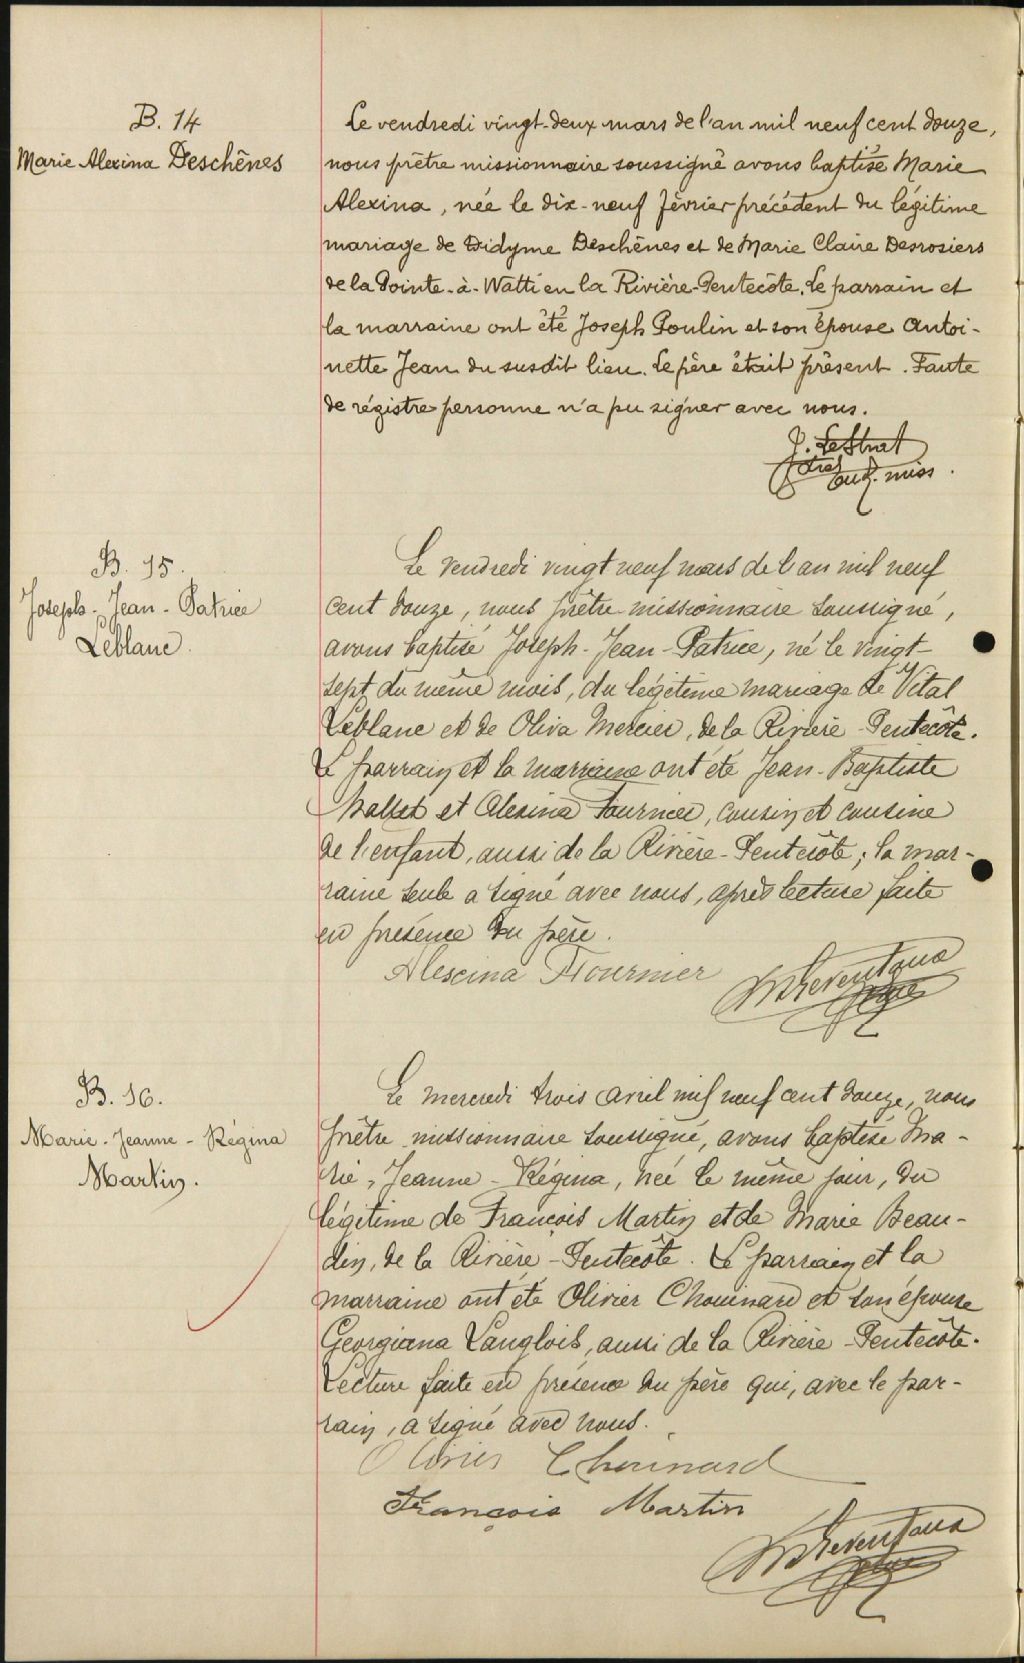 B. 14
Marie Alexina Deschênes
Le vendredi vingt-deux mars de l'an mil neuf cent douze,
nous prêtre missionnaire soussigné avons baptisé Marie
Alexina, née le dix-neuf février précédent du légitime
mariage de Didyme Deschênes et de Marie Claire Desrosiers
de la Pointe-à-Watti en la Rivière-Pentecôte. Le parrain et
la marraine ont été Joseph Poulin et son épouse Antoi-
nette Jean du susdit lieu. Le père était présent. Faute
de régistre personne n'a pu signer avec nous.
J. LeStrat
ptre eud. miss.
B. 15.
Joseph-Jean-Patrice
Leblanc
Le vendredi vingt neuf mars de l'an mil neuf
cent douze, nous prêtre missionnaire soussigné,
avons baptisé Joseph-Jean-Patrice, né le vingt-
sept du même mois, du légitime mariage de Vital
Leblanc et de Oliva Mercier, de la Rivière-Pentecôte.
Le parrain et la marraine ont été Jean-Baptiste
Mallet et Alexina Fournier, cousin et cousine
de l'enfant, aussi de la Rivière-Pentecôte; la mar-
raine seule a signé avec nous, après lecture faite
en présence du père.
Alexcina Fournier
ptre
B. 16.
Marie-Jeanne-Régina
Martin.
Le mercredi trois avril mil neuf cent douze, nous
prêtre missionnaire soussigné, avons baptisé Ma-
rie-Jeanne-Régina, née le même jour, du
légitime de François Martin et de Marie Beau-
din, de la Rivière-Pentecôte. Le parrain et la
marraine ont été Olivier Chouinard et son épouse
Georgiana Langlois, aussi de la Rivière-Pentecôte.
Lecture faite en présence du père qui, avec le par-
rain, a signé avec nous.
Olivier Chouinard
François Martin
ptre